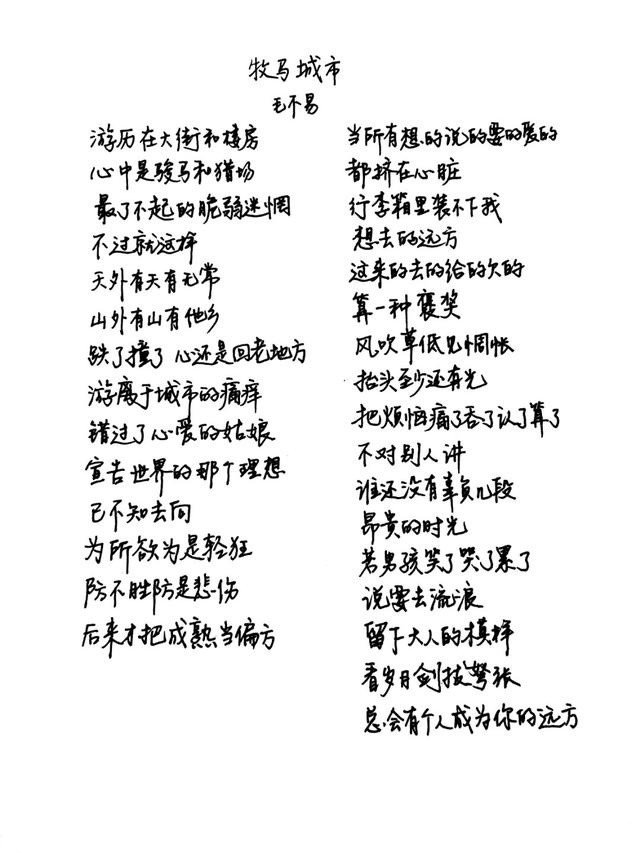 牧马城市
毛不易
游历在大街和楼房
心中是骏马和猎场
最了不起的脆弱迷惘
不过就这样
天外有天有无常
山外有山有他乡
跌了撞了 心还是回老地方
游离于城市的痛痒
错过了心爱的姑娘
宣告世界的那个理想
已不知去向
为所欲为是轻狂
防不胜防是悲伤
后来才把成熟当偏方
当所有想的说的要的爱的
都挤在心脏
行李箱里装不下我
想去的远方
过来的去的给的欠的
算一种褒奖
风吹草低见惆怅
抬头至少还有光
把烦恼痛了吞了认了算了
不对别人讲
谁还没有辜负几段
昂贵的时光
若男孩笑了哭了累了
说要去流浪
留下大人的模样
看岁月剑拔弩张
总会有个人成为你的远方